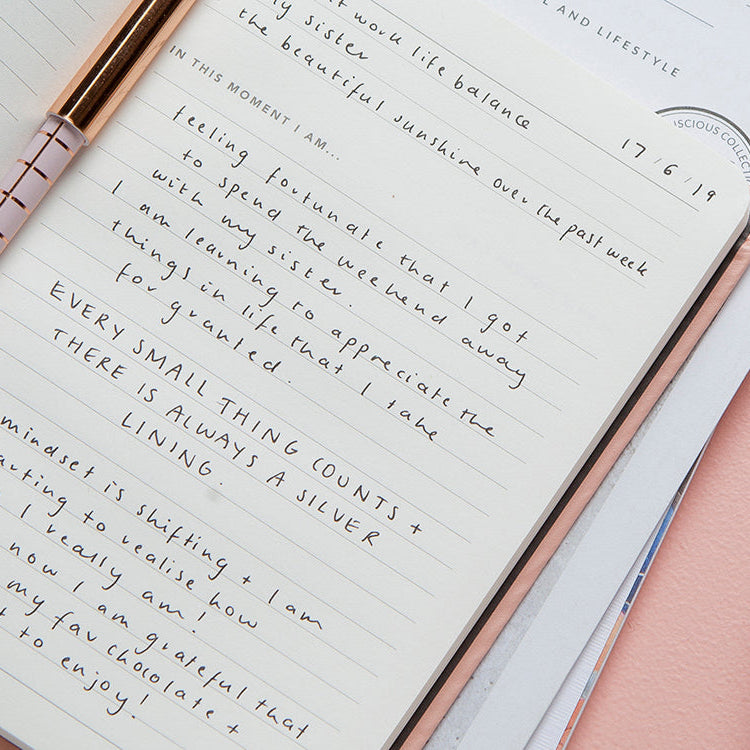 work life balance
my sister
the beautiful sunshine over the past week
17/6/19
IN THIS MOMENT I AM...
feeling fortunate that I got
to spend the weekend away
with my sister.
I am learning to appreciate the
things in life that I take
for granted.
EVERY SMALL THING COUNTS +
THERE IS ALWAYS A SILVER
LINING.
mindset is shifting + I am
to realise how
I really am!
now I am grateful that
my fav chocolate +
to enjoy!
AND LIFESTYLE